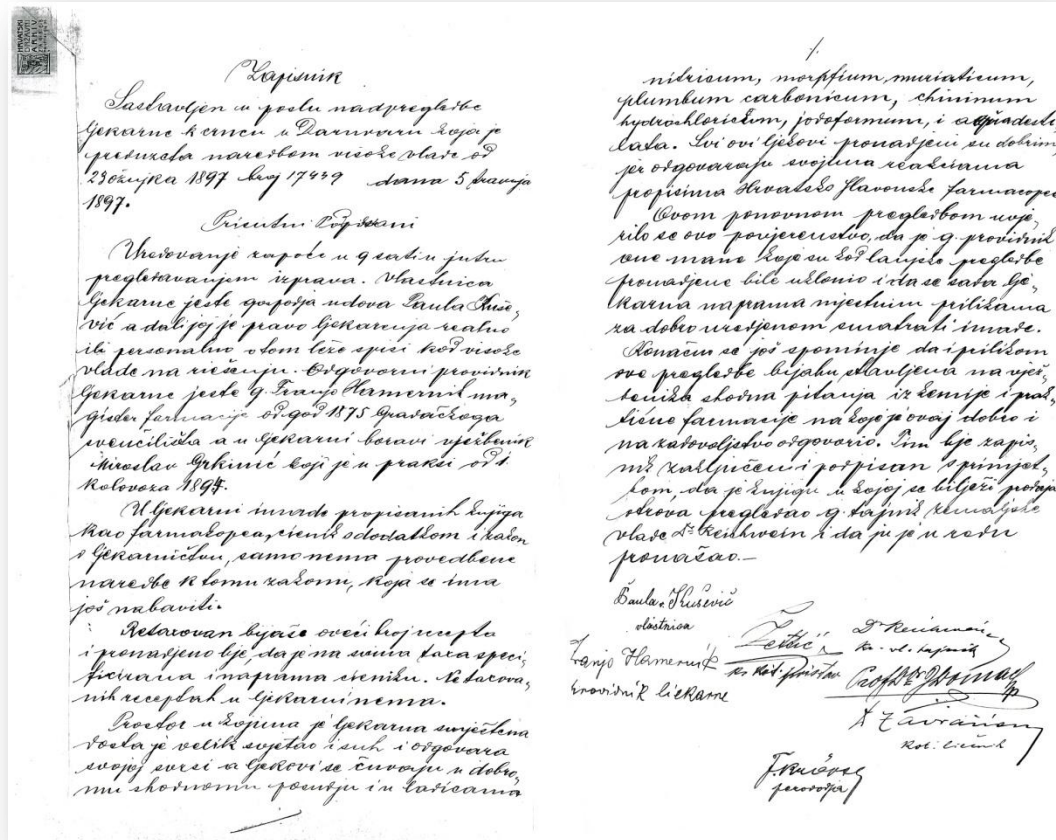 HRVATSKI
DRŽAVNI
ARHIV
Zapisnik
Sastavljen u poslu nadpregledbe
ljekarne k crncu u Daruvaru koja je
preduzeta naredbom visoke vlade od
23 ožujka 1897 broj 17439 dana 5 travnja
1897.
Prisutni Podpisani
Uredovanje započe u 9 sati u jutru
pregledavanjem izprava. Vlastnica
ljekarne jeste gospodja udova Paula Kuše-
vić a dali joj je pravo ljekarenja realno
ili personalno o tom leže spisi kod visoke
vlade na riešenju. Odgovorni providnik
ljekarne jeste g. Franjo Hamernik ma-
gister farmacije od god 1875 Gradačkoga
sveučilišta a u ljekarni boravi vježbenik
Miroslav Grkinić koji je u praksi od 1.
kolovoza 1895.
U ljekarni imade propisanih knjiga
kao farmakopea, cienik s dodatkom i zakon
o ljekarničtvu, samo nema provedbene
naredbe k tomu zakonu, koja se ima
još nabaviti.
Retaxovan bijaše oveći broj recepta
i pronadjeno bje, da je na svima taxa speci-
ficirana i naprama cieniku. Ne taxova-
nih receptah u ljekarni nema.
Prostor u kojima je ljekarna smještena
dosta je velik svjetao i suh i odgovara
svojoj svrsi a ljekovi se čuvaju u dobro-
mu shodnomu posudju i u ladicama
nitricum, morphium muriaticum,
plumbum carbonicum, chininum
hydrochloricum, jodoformum, i aqua desti
lata. Svi ovi ljekovi pronadjeni su dobrim
jer odgovaraju svojima reakcijama
propisima Hrvatsko slavonske farmacopee
Ovom ponovnom pregledbom uvje-
rilo se ovo povjerenstvo, da je g. providnik
one mane koje su kod lanjske pregledbe
pronadjene bile uklonio i da se sada lje-
karna naprama mjestnim prilikama
za dobro uredjenom smatrati imade.
Konačno se još spominje da i prilikom
ove pregledbe bijahu stavljena na vjež-
benika shodna pitanja iz kemije i prak-
tične farmacije na koje je ovaj dobro i
na zadovoljstvo odgovorio. Tim bje zapis-
nik zaključen i podpisan s primjet-
bom, da je knjigu u kojoj se bilježi prodaja
otrova pregledao g. tajnik zemaljske
vlade Dr Reichwein i da ju je u redu
pronašao.—
Paula Kušević
vlastnica
Franjo Hamernik
providnik liekarne
kr. kot. pristav
Dr
kr. vl. tajnik
Prof Dr
kot. liečnik
perovodja